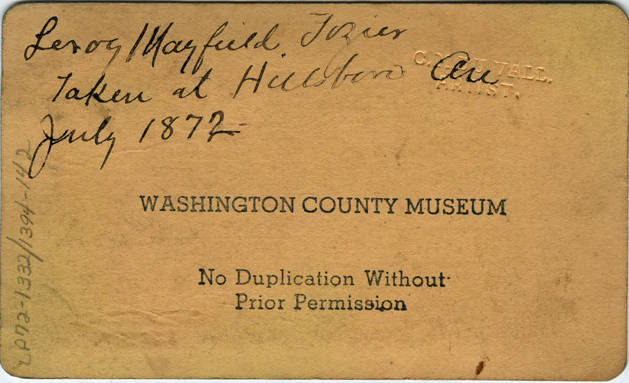 Leroy Mayfield Tozier
Taken at Hillsboro
July 1872
ARTIST.
WASHINGTON COUNTY MUSEUM
No Duplication Without
Prior Permission
LP72-1332/1394-142